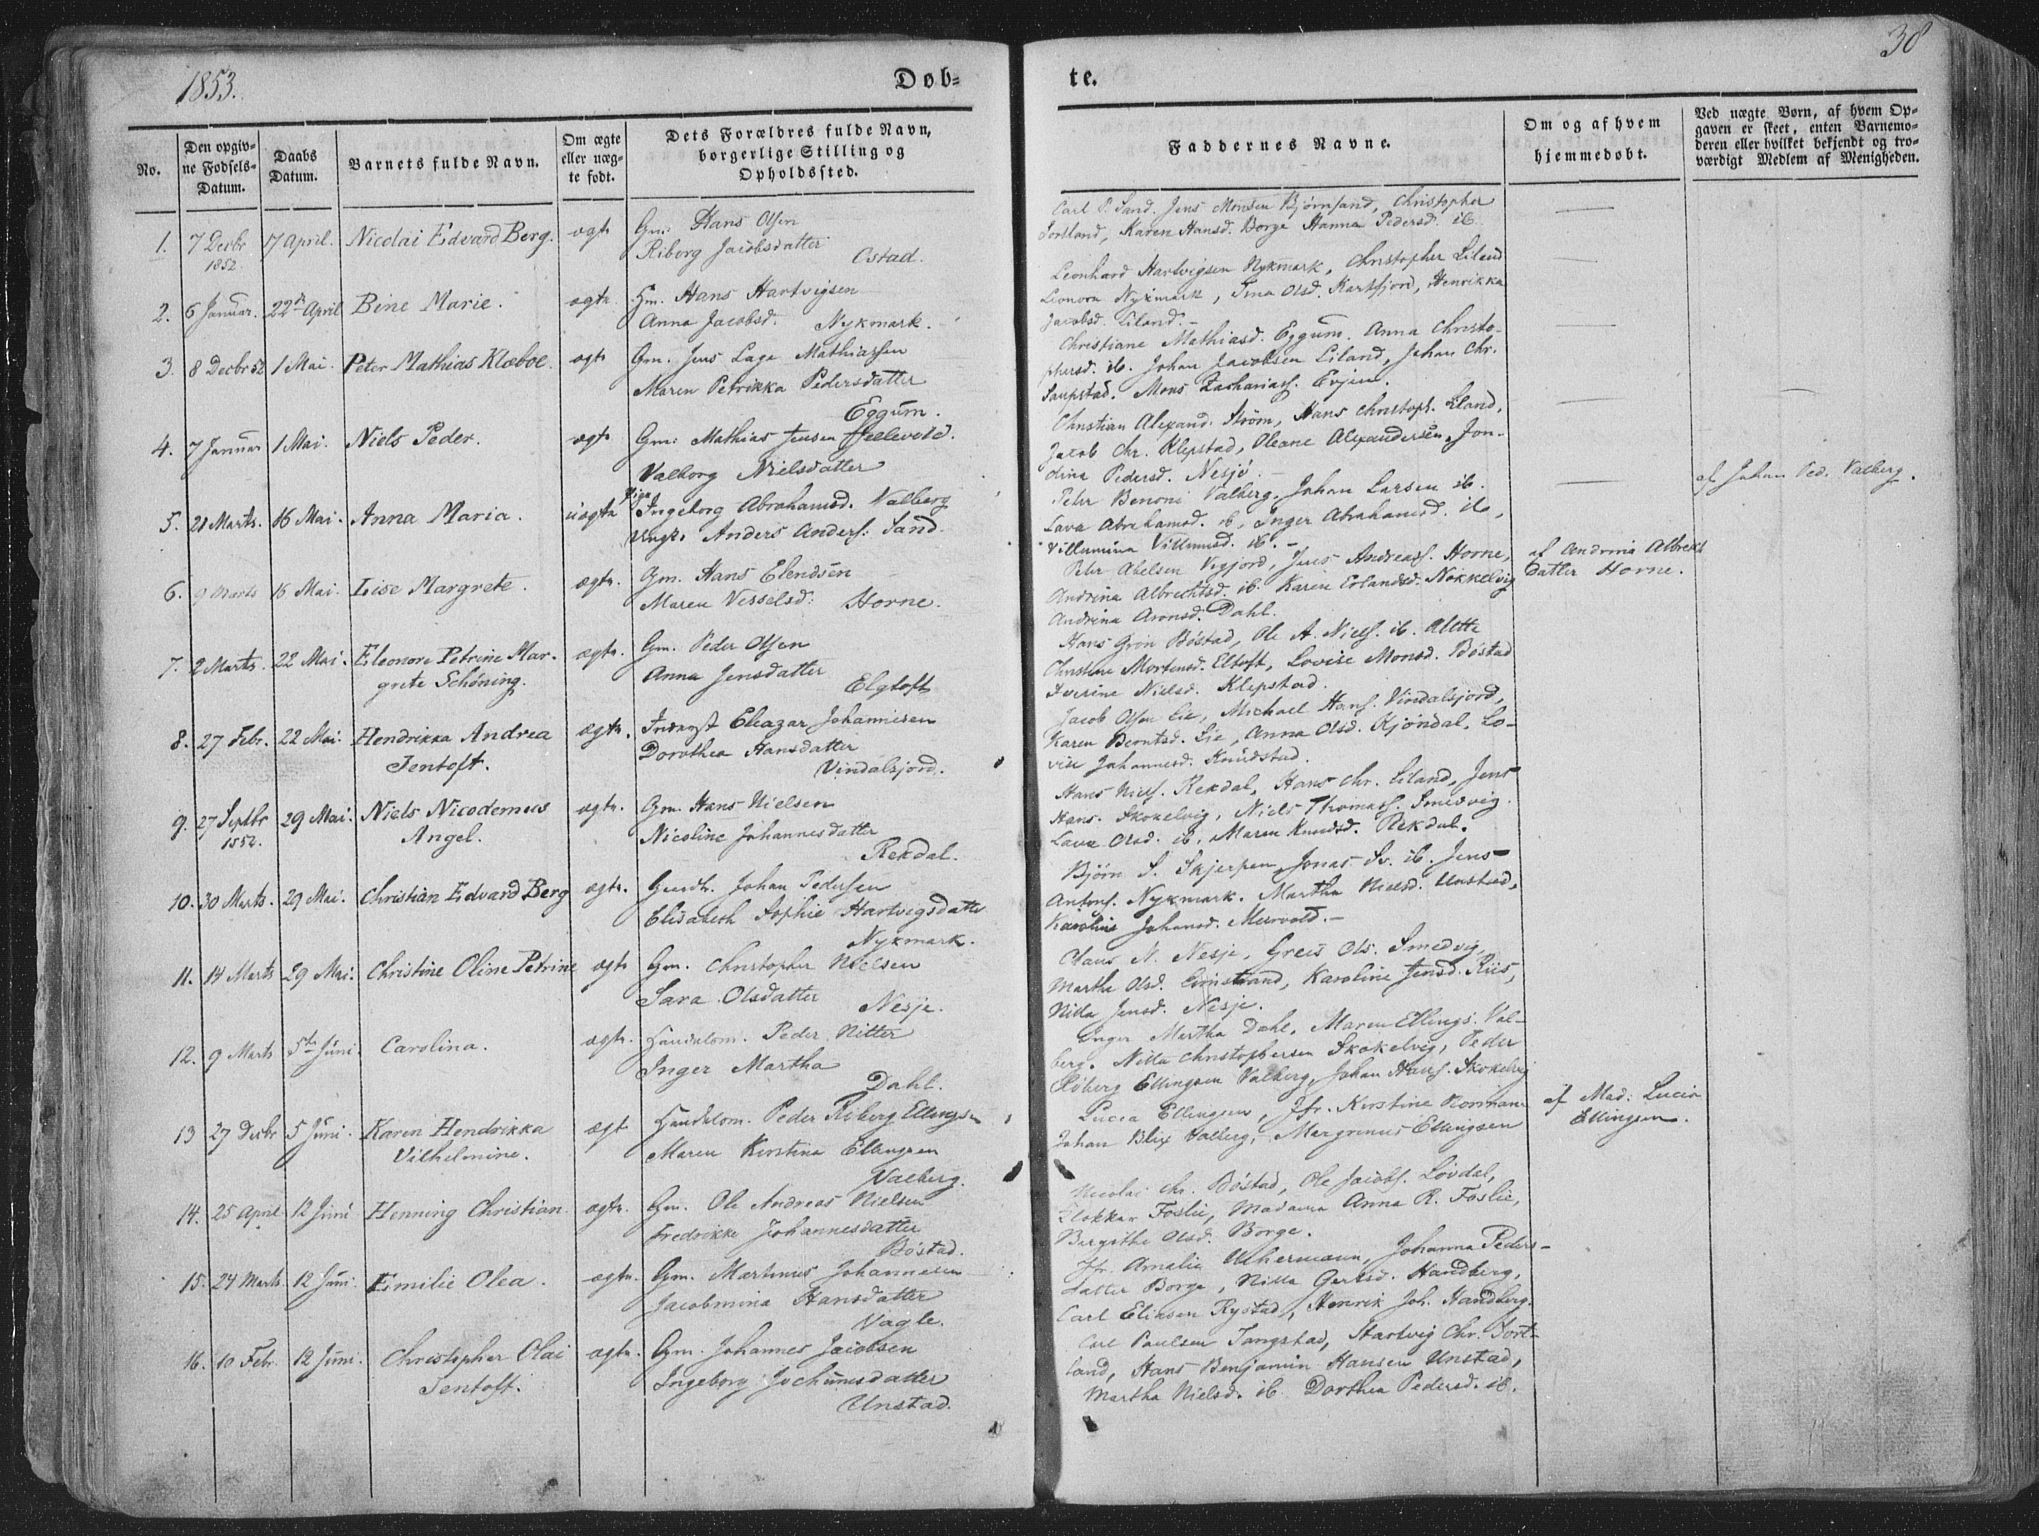 1853.
Døb=
No.
Den opgiv-
ne Fødsels-
Datum.
Daabs
Datum.
Barnets fulde Navn.
Om ægte
eller uæg-
te født.
Dets Forældres fulde Navn,
borgerlige Stilling og
Opholdssted.
1. 7 Decbr 17 April. Nicolai Edvard Berg. ægte Gm: Hans Olsen
1852. Riborg Jacobsdatter
Ostad.
2. 6 Januar. 22de April Bine Marie. ægte. Hm. Hans Hartvigsen
Anna Jacobsd. Nykmark.
3. 8 Decbr 52 1 Mai. Peter Mathias Klæboe. ægte Gm. Jens Lage Mathiassen
Maren Petrikka Pedersdatter
Eggum.
4. 7 Januar 1 Mai. Niels Peder. ægte Gm: Mathias Jensen Hellevold.
Valborg Nielsdatter
5. 21 Marts. 16 Mai. Anna Maria. uægte Pige Ingeborg Abrahamsd. Valberg
Ungk. Anders Anders: Sand.
6. 9 Marts 16 Mai. Lise Margrete. ægte. Gm. Hans Elendsen
Maren Vesselsd: Horne.
7. 2 Marts. 22 Mai. Eleonore Petrine Mar- ægte. Gm. Peder Olsen
grete Schöning. Anna Jensdatter
Elgtoft
8. 27 Febr. 22 Mai. Hendrikka Andrea ægte. Inderst Eleazar Johannesen
Jentoft. Dorothea Hansdatter
Vindalsjord.
9. 27 Septbr 29 Mai. Niels Nicodemus ægte. Gm. Hans Nielsen
1852. Angel. Nicoline Johannesdatter
Rekdal.
10. 30 Marts. 29 Mai. Christian Edvard Berg ægte. Johan Pedersen
Elisabeth Sophie Hartvigsdatter
Nykmark.
11. 14 Marts 29 Mai. Christine Oline Petrine ægte Gm. Christopher Nielsen
Sara Olsdatter Nesje.
12. 9 Marts 5te Juni. Carolina. ægte. Handelsm. Peder Nitter
Inger Martha
Dahl.
13 27 Decbr 5 Juni. Karen Hendrikka ægt Handelsm. Peder Riberg Ellingsen
Vilhelmine. Maren Kirstina Ellingsen
Valberg.
14. 25 April 12 Juni Henning Christian ægte. Gm. Ole Andreas Nielsen
Fredrikke Johannesdatter
Böstad.
15. 24 Marts 12 Juni. Emilie Olea. ægte. Gm. Martinus Johannesen
Jacobmina Hansdatter
Vagle.
16. 10 Febr. 12 Juni. Christopher Olai ægte. Gm. Johannes Jacobsen
Jentoft. Ingeborg Jochumsdatter
Unstad.
te.
38
Faddernes Navne.
Om og af hvem
hjemmedøbt.
Ved uægte Børn, af hvem Op-
gaven er skeet, enten Barnemo-
deren eller hvilket bekjendt og tro-
værdigt Medlem af Menigheden.
Carl P. Sand. Jens Monsen Bjørnsand, Christopher
Sortland, Karen Hansd. Borge Hanna Pedersd. ib.
Leonhard Hartvigsen Nykmark, Christopher Liland
Leonora Nykmark, Trna Olsd. Kartfjord, Henrikka
Jacobsd. Liland.
Christiane Mathiasd. Eggum. Anna Christo-
phersd. ib. Johan Jacobsen Liland, Johan Chr.
Saupstad. Mons Zachariass. Evjen.
Christian Alexand. Strøm, Hans Christoph. Liland,
Jacob Chr. Klepstad, Oleane Alexandersen, Jon-
drina Pedersd. Nesje.
Petr Benoni Valberg, Johan Larsen ib.
Lava Abrahamsd. ib, Inger Abrahamsd. ib,
Villumina Villumsd. ib. -
af Johan Ped. Valberg.
Petr Abelsen Vigjord, Jens Andreass. Horne,
Andrina Albrechtsd. ib. Karen Erlandsd. Nökkelvig
Andrina Aronsd. Dahl.
af Andrina Albrekt
Datter Horne.
Hans Grön Böstad, Ole A. Niels. ib. Alette
Christine Mortensd. Eltoft, Lovise Monsd. Böstad
Iverine Nielsd. Klepstad.
Jacob Olsen Lie, Michael Hans. Vindalsjord,
Karen Berntsd. Lie, Anna Olsd. Kjöndal, Lo-
vise Johannesd. Knudstad.
Hans Niels. Rekdal, Hans Chr. Liland, Jens
Hans. Skokelvig, Niels Thomass. Smedvig.
Lava Olsd. ib. Maren Knudsd. Rekdal.
Bjørn S. Skjerpen, Jonas Sv. ib. Jens
Antons. Nykmark. Martha Nielsd. Unstad,
Karoline Johansd. Mervold. -
Claus N. Nesje, Greis Ols. Smedvig,
Martha Olsd. Limstrand, Karoline Jensd. Riis,
Nilla Jensd. Nesje.
Inger Martha Dahl, Maren Ellings. Val-
berg. Nilla Christophersen Skokelvig, Peder
Riberg Ellingsen Valberg, Johan Hans. Skokelvig
Lucia Ellingsen, Jfr. Kirstine Normann
Johan Blix Valberg, Margrenus Ellingsen
af Mad: Lucia
Ellingsen.
Nicolai Chr. Böstad, Ole Jacobs. Lövdal,
Klokker Foslie, Madama Anna R. Foslie,
Bergithe Olsd. Borge.
Jfr. Amalia Uchermann, Johanna Peders-
datter Borge, Nilla Gertsd. Handberg,
Carl Eliasen Rystad, Henrik Joh. Handberg.
Carl Paulsen Tangstad, Hartvig Chr. Sort-
land, Hans Benjamin Hansen Unstad,
Martha Nielsd. ib Dorthea Pedersd. ib.